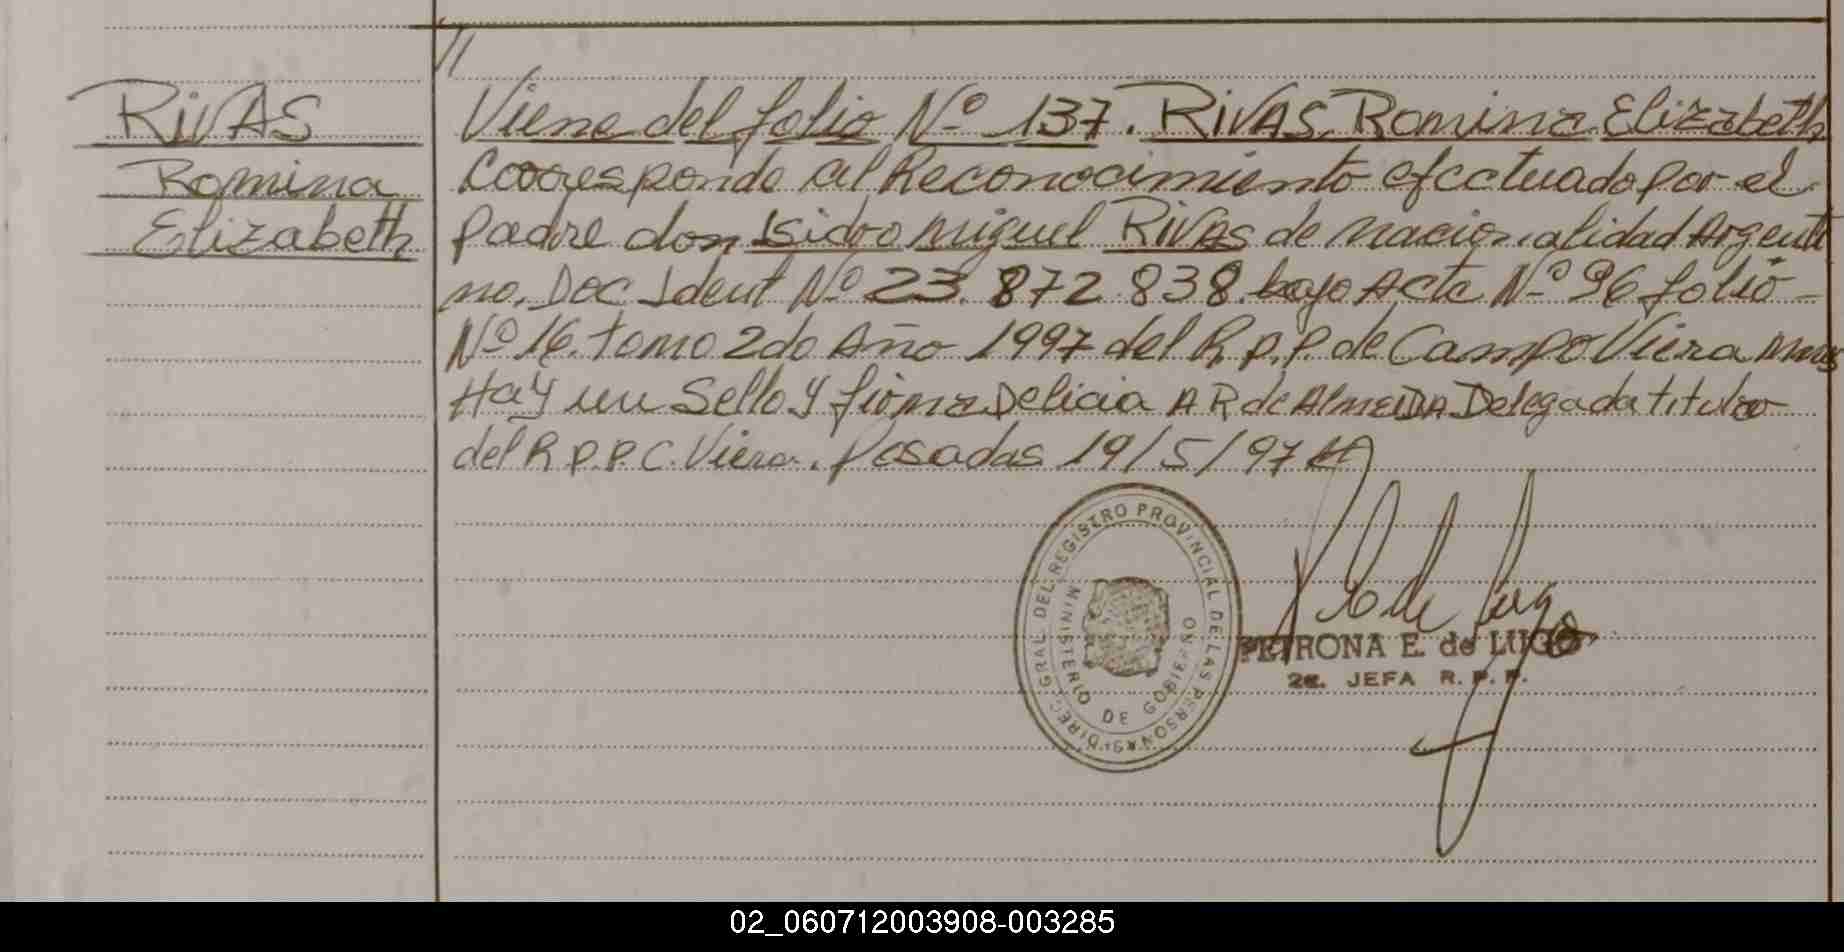 RIVAS
Romina
Elizabeth
Viene del folio Nº 137. RIVAS, Romina Elizabeth
Corresponde al Reconocimiento efectuado por el
padre don Isidro Miguel RIVAS de nacionalidad Argenti
no. Doc Ident Nº 23.872.838. bajo Acta Nº 96 folio -
Nº 16. tomo 2do Año 1997 del R.P.P. de Campo Viera Mnes
Hay un Sello y firma Delicia A R de AlmeIDA Delegada titular
del R.P.P. C. Viera. Posadas 19/5/97
DIREC. GRAL. DEL REGISTRO PROVINCIAL DE LAS PERSONAS
MINISTERIO DE GOBIERNO
PETRONA E. de LUGO
2a. JEFA R. P. P.
02_060712003908-003285